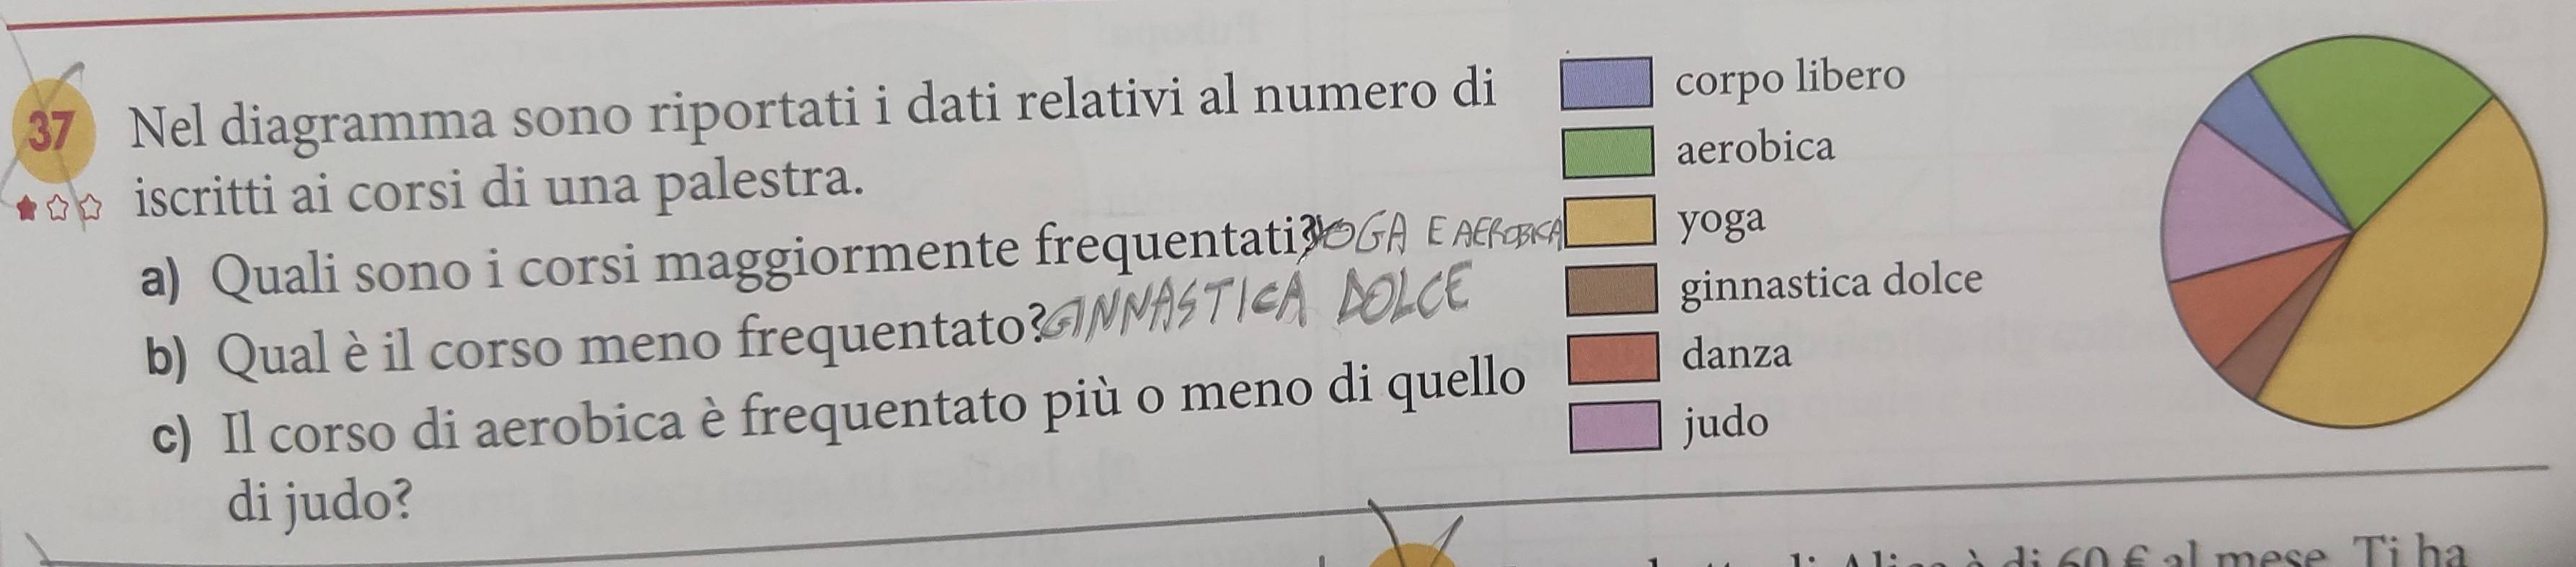 37 Nel diagramma sono riportati i dati relativi al numero di
iscritti ai corsi di una palestra.
a) Quali sono i corsi maggiormente frequentati? YOGA E AEROBICA
b) Qual è il corso meno frequentato? GINNASTICA DOLCE
c) Il corso di aerobica è frequentato più o meno di quello
di judo?
corpo libero
aerobica
yoga
ginnastica dolce
danza
judo
è di 60 € al mese. Ti ha